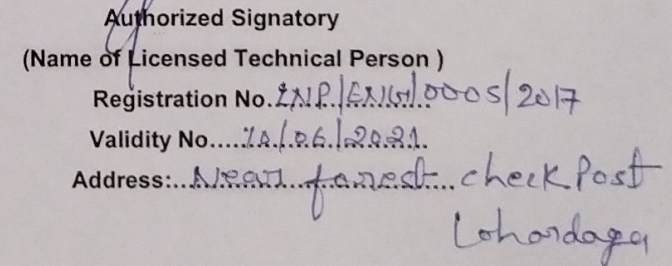 Authorized Signatory
(Name of Licensed Technical Person )
Registration No. LNP/ENG/0005/2017
Validity No.....10/06/2021.
Address:..Near forest check Post
Lohardaga